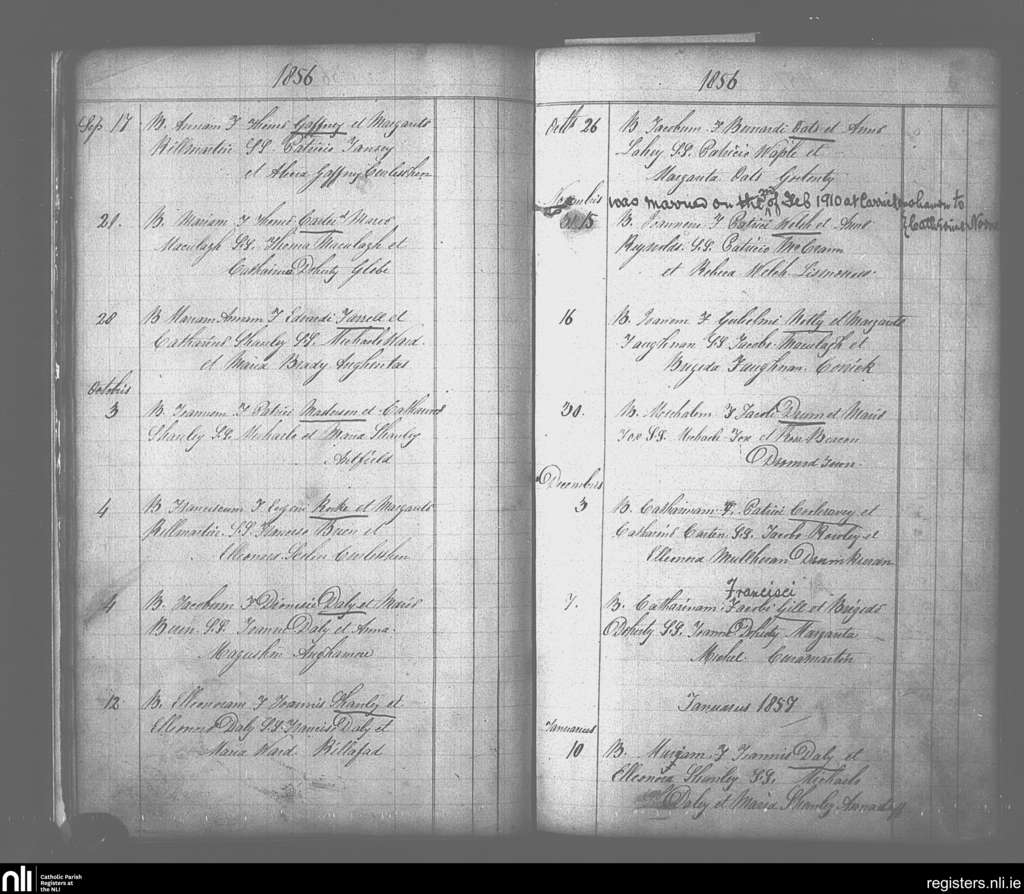 1856
Sep 17 B. Annam F Thoms Gaffney et Margarits
Killmartin SS. Patricio Tansey
et Abera Gaffny
21. B. Mariam F Thoms Carti et Mares
Maculagh SS Thoma Maculagh et
Catharina Doherty Glebe
28 B Mariam Annam F Edvardi Farrell et
Catharins Shanley SS. Michaele Ward
et Maria Brady Augheritas
Octobris
3 B. Joannem F Patrici Maderson et Catharins
Shanley SS. Michaele et Maria Shanley
Artfield
4 B Franciscum F Eugeni Rorke et Margarits
Killmartin SS Francisco Bein et
Elleonora
4 B. Jacobum F Dionisis Daly et Maris
Bein SS. Joanne Daly et Anna
Maguskin Aughamore
12 B. Elleonoram F Joannis Shanley et
Elleonors Daly SS. Francisco Daly et
Maria Ward Killafad
1856
Octb 26 B Jacobum F Bernardi Oats et Anns
Lahey SS. Patricio Waple et
Margarita Oats
Novembris was married on the of Feb 1910 at Carrick to
15 B. Joannem F Patrici Welsh et Anns { Catherine
Reynolds SS. Patricio McCrann
et Rebeca Welch Lismoness
16 B. Joanem F Gulielmi Notly et Margarits
Faughnan SS Jacobo Maculagh et
Brigida Faughnan Corrick
30. B. Mechalem F Jacobi Drum et Maris
Fox SS. Michaele Fox et Rose Beacon
Dromod Town
Decembris
3 B. Catharinam F. Patrici Corkeromy et
Catharins Carten SS. Jacobo Rowley et
Elleonora Mullheran Drumkieran
Francisci
7. B. Catharinam F Jacobi Gill et Brigids
Doherty SS. Joanne Doherty Margarita
Mickel
Januarus 1857
Januarus
10 B. Mariam F Joannis Daly et
Elleonora Shanley SS. Michaele
Daley et Maria Shanley Annaduff
nli Catholic Parish
Registers at
the NLI
registers.nli.ie